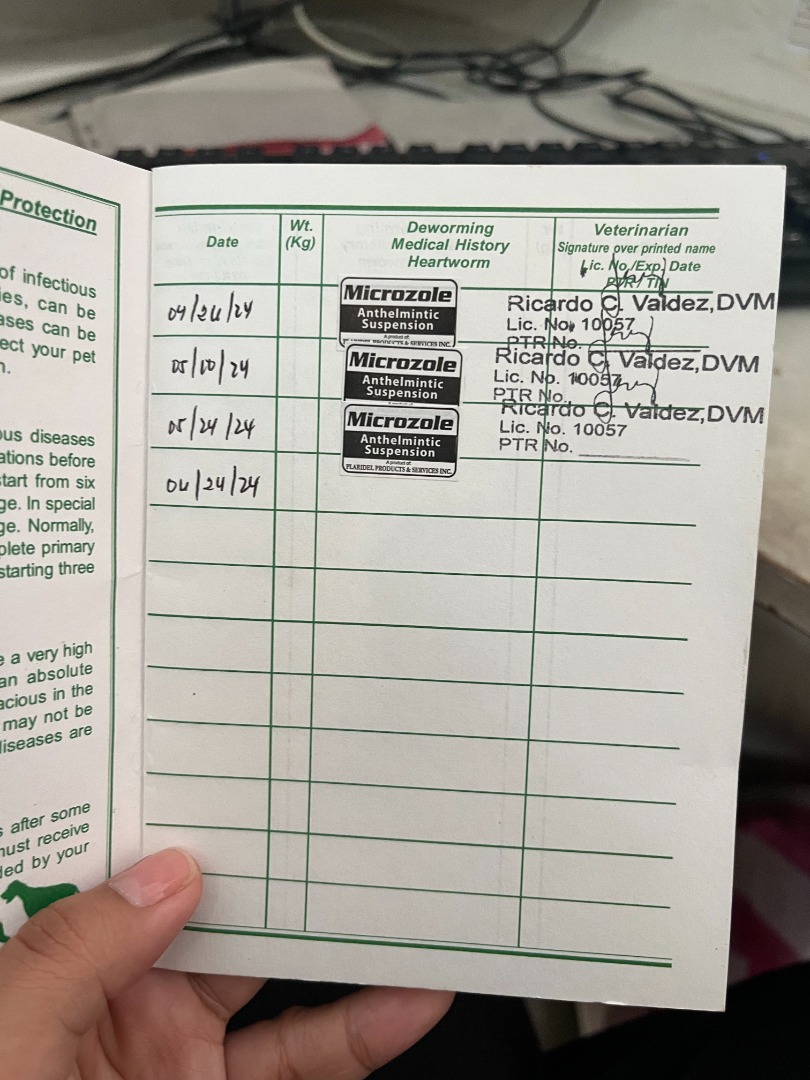 Protection
of infectious
ies, can be
ases can be
ect your pet
n.
ous diseases
ations before
start from six
ge. In special
ge. Normally,
plete primary
starting three
e a very high
an absolute
acious in the
may not be
diseases are
s after some
must receive
ded by your
Date
Wt.
(Kg)
Deworming
Medical History
Heartworm
Veterinarian
Signature over printed name
Lic. No./Exp. Date
PTR/TIN
04/26/24
Microzole
Anthelmintic
Suspension
A product of:
PRODUCTS & SERVICES INC.
Ricardo C. Valdez, DVM
Lic. No. 10057
PTR No.
05/10/24
Microzole
Anthelmintic
Suspension
Ricardo C. Valdez, DVM
Lic. No. 10057
PTR No.
05/24/24
Microzole
Anthelmintic
Suspension
A product of:
PLARIDEL PRODUCTS & SERVICES INC.
Ricardo C. Valdez, DVM
Lic. No. 10057
PTR No.
06/24/24